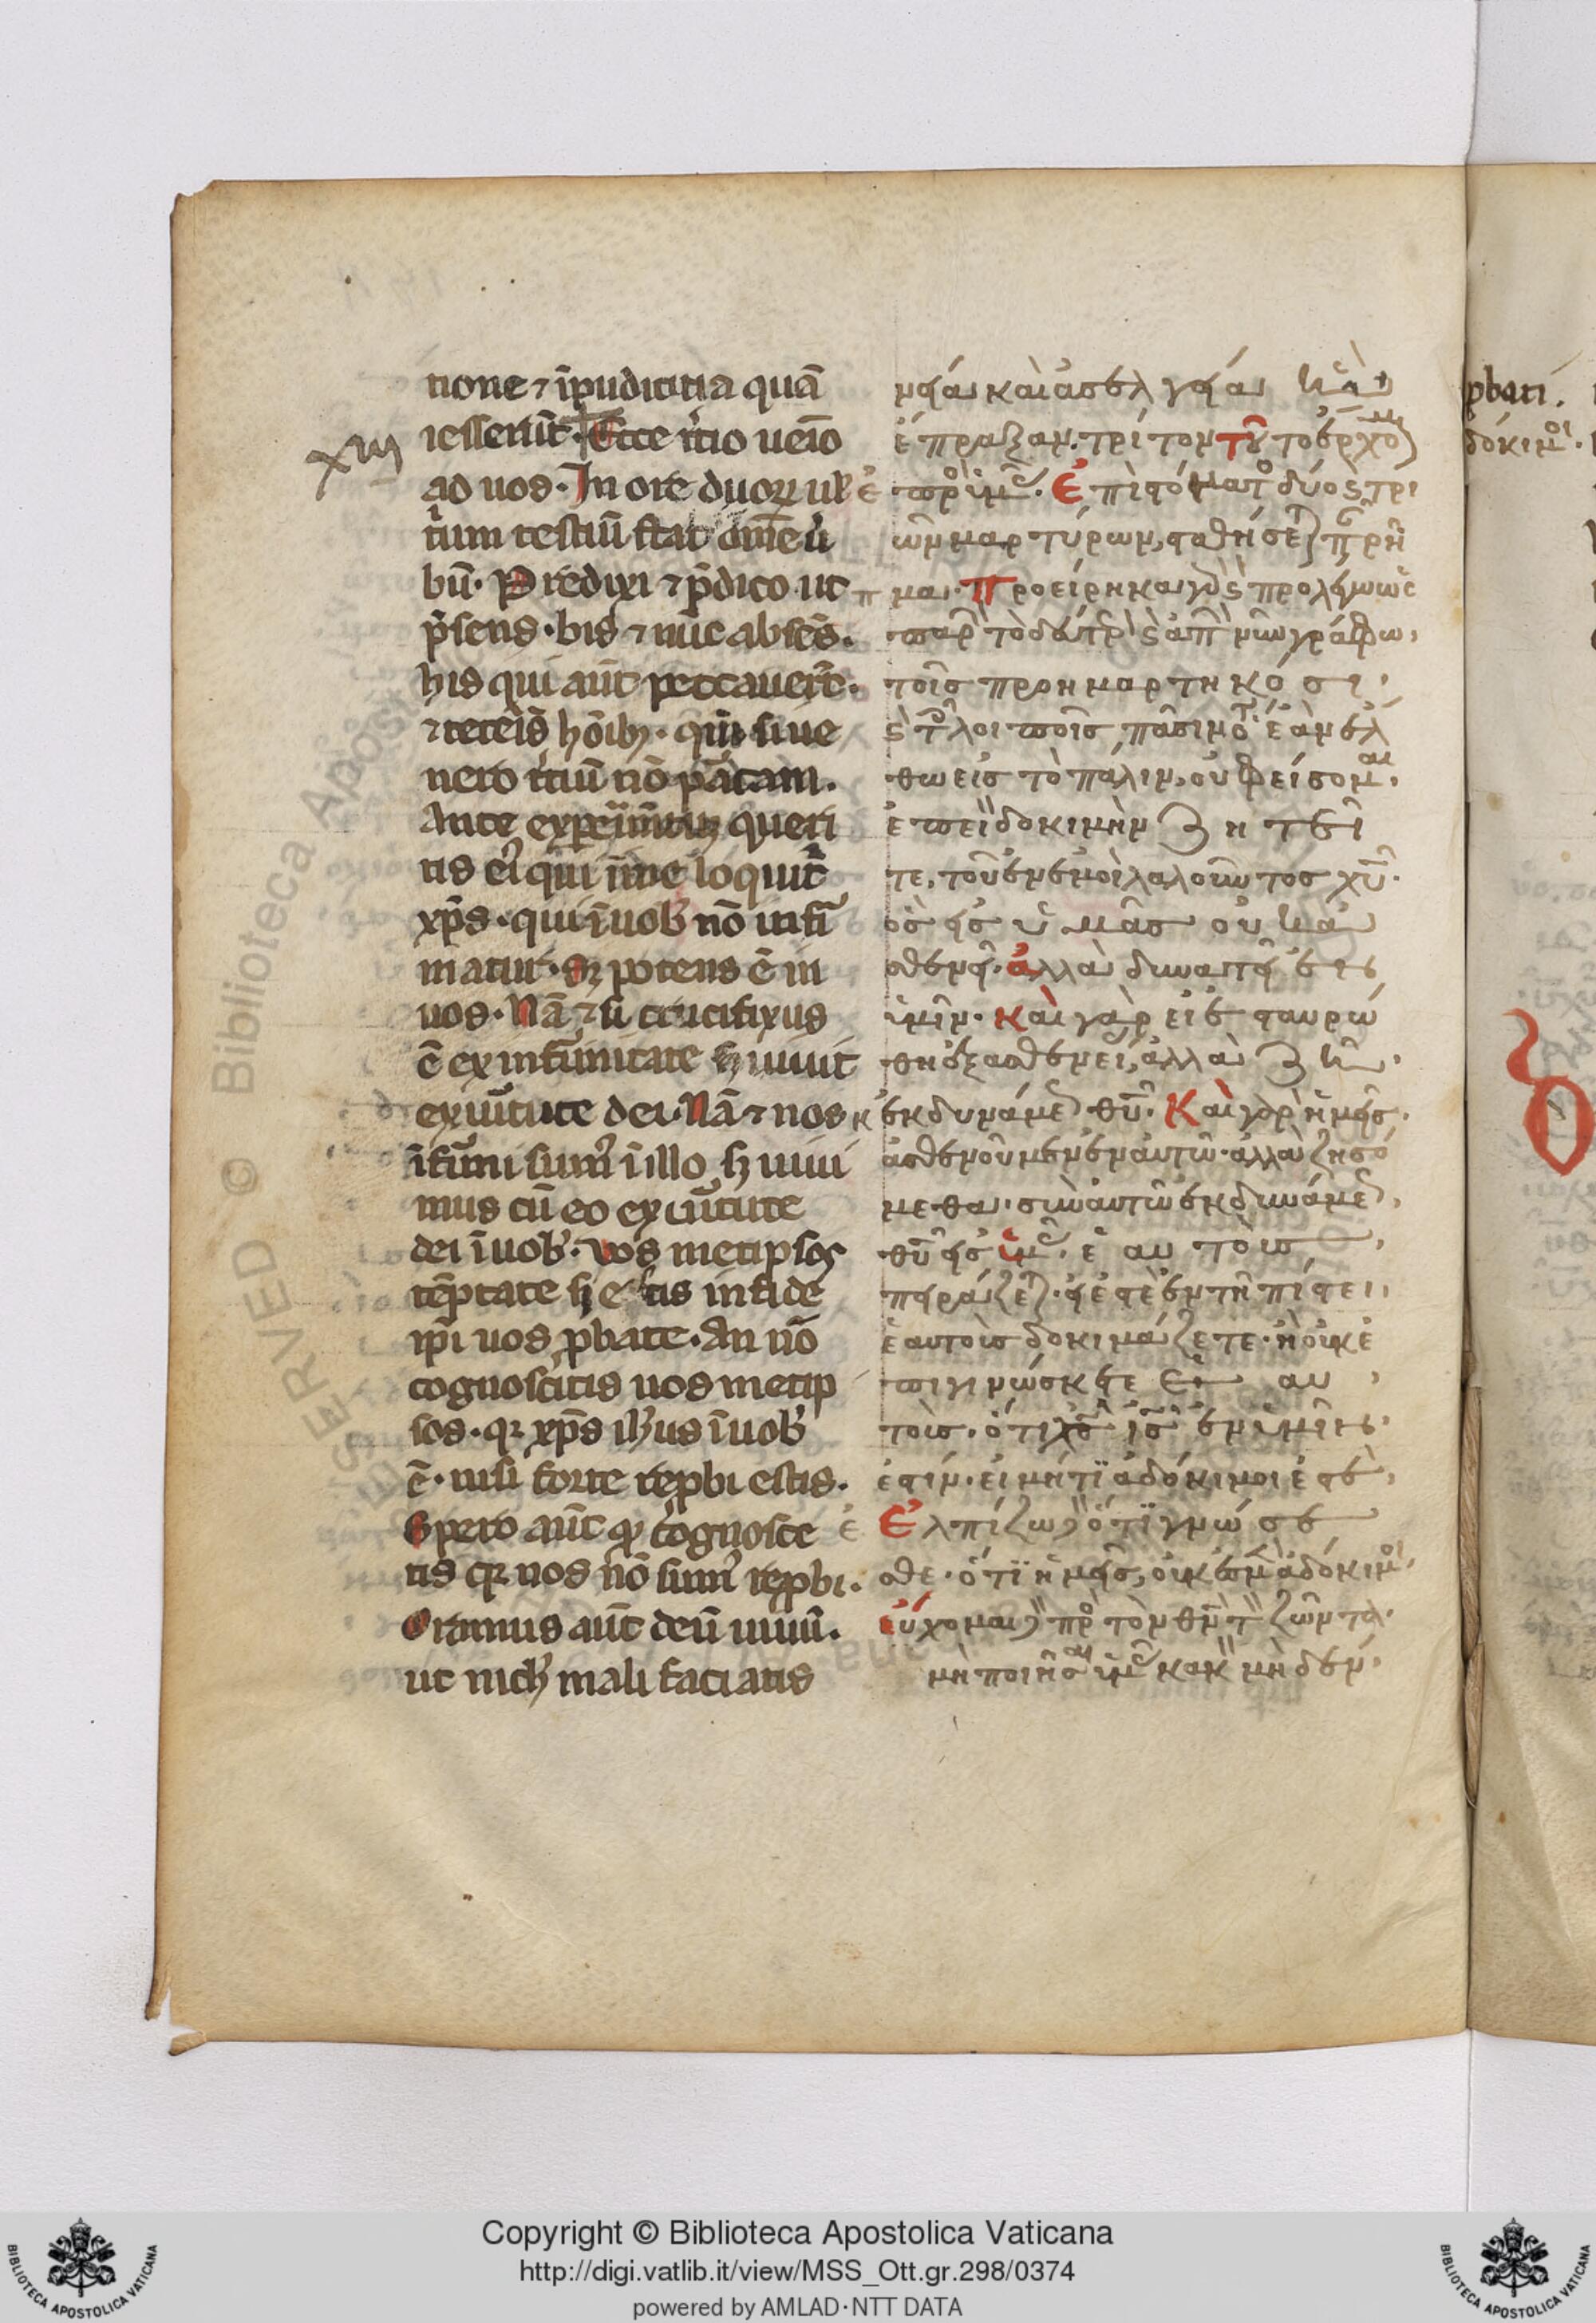 tione ⁊ īpudicitia quā
iesserūt· Ecce t̾cio ueīo
xiij
ad uos· In ore duoꝝ ul̵
tͥum testiū stat om̄e ū
bū· Predixi ⁊ p̄dico ut
p̄sens· bis ⁊ nūc absēs·
his qui aūt peccauer̄t·
⁊ cet̾is hōibꝫ· qm̄ si ue
nero t̾ciū nō p̄cam·
Ante exp̄im̄tū queri
tis ei᷒ qui ī me loquit᷑
xp̄s· qui ī uob̵ nō infi
matur· sꝫ potens ē in
uos· Nā ⁊ si crucifixus
ē ex infirmitate sꝫ uiuit
ex uirtute dei· Nā ⁊ nos
īfirmi sum᷒ ī illo sꝫ uiui
mus cū eo ex uirtute
dei ī uob̵· Vos metipsos
tēptate si estis in fide
ip̄i uos ꝓbate· An nō
cognoscitis uos metip
sos· qꝛ xp̄s ih̄us ī uob̵
ē· nisi forte reꝓbi estis·
Spero aūt ꝙ cognosce
tis qꝛ nos nō sum᷒ reꝓbi·
Oramus aūt deū uiuū·
ut nich̵ mali faciatis
νεία καὶ ἀσελγεία
ἔπραξαν· τρίτον τοῦτο ἔρχομαι
ἐ πρὸς ὑμᾶς· Ἐπὶ στόματος δύο ϗ τρι
ῶν μαρτύρων, σταθήσεται πᾶν ῥῆ
π μα· Προείρηκα γὰρ ϗ προλέγω ὡς
παρὼν τὸ δεύτερον ϗ ἀπὼν νῦν γράφω,
τοῖς προημαρτηκόσι,
ϗ τοῖς λοιποῖς πᾶσιν ὅτι ἐὰν ἔλ
θω εἰς τὸ πάλιν, οὐ φείσομαι·
ἐπεὶ δοκιμὴν ζητεῖ
τε, τοῦ ἐν ἐμοὶ λαλοῦντος χυ̅·
ὃς εἰς ὑμᾶς οὐκ ἀ
σθενεῖ· ἀλλὰ δυνατεῖ ἐν
ὑμῖν· Καὶ γὰρ εἰ ἐσταυρώ
θη ἐξ ἀσθενείας, ἀλλὰ ζῆ
κ ἐκ δυνάμεως θυ̅· Καὶ γὰρ ἡμεῖς
ἀσθενοῦμεν ἐν αὐτῶ· ἀλλὰ ζησό
μεθα· σὺν αὐτῶ ἐκ δυνάμεως
θυ̅ εἰς ὑμᾶς· ἑαυτοὺς
πειράζετε· εἰ ἐστὲ ἐν τῆ πίστει,
ἑαυτοὺς δοκιμάζετε· ἢ οὐκ ἐ
πιγινώσκετε ἑαυ
τοὺς· ὅτι χς̅ ις̅ ἐν ὑμῖν
ἐστίν· εἰ μήτι ἀδόκιμοι ἐστὲ,
ἐ Ἐλπίζω δὲ ὅτι γνώσε
σθε· ὅτι ἡμεῖς, οὐκ ἐσμὲν ἀδόκιμοι·
εὔχομαι δὲ πρὸς τὸν θν̅ τὸν ζῶντα·
μὴ ποιῆσαι ὑμᾶς κακὸν μηδέν·
ꝓbati·
δόκιμοι·
Copyright © Biblioteca Apostolica Vaticana
http://digi.vatlib.it/view/MSS_Ott.gr.298/0374
powered by AMLAD·NTT DATA